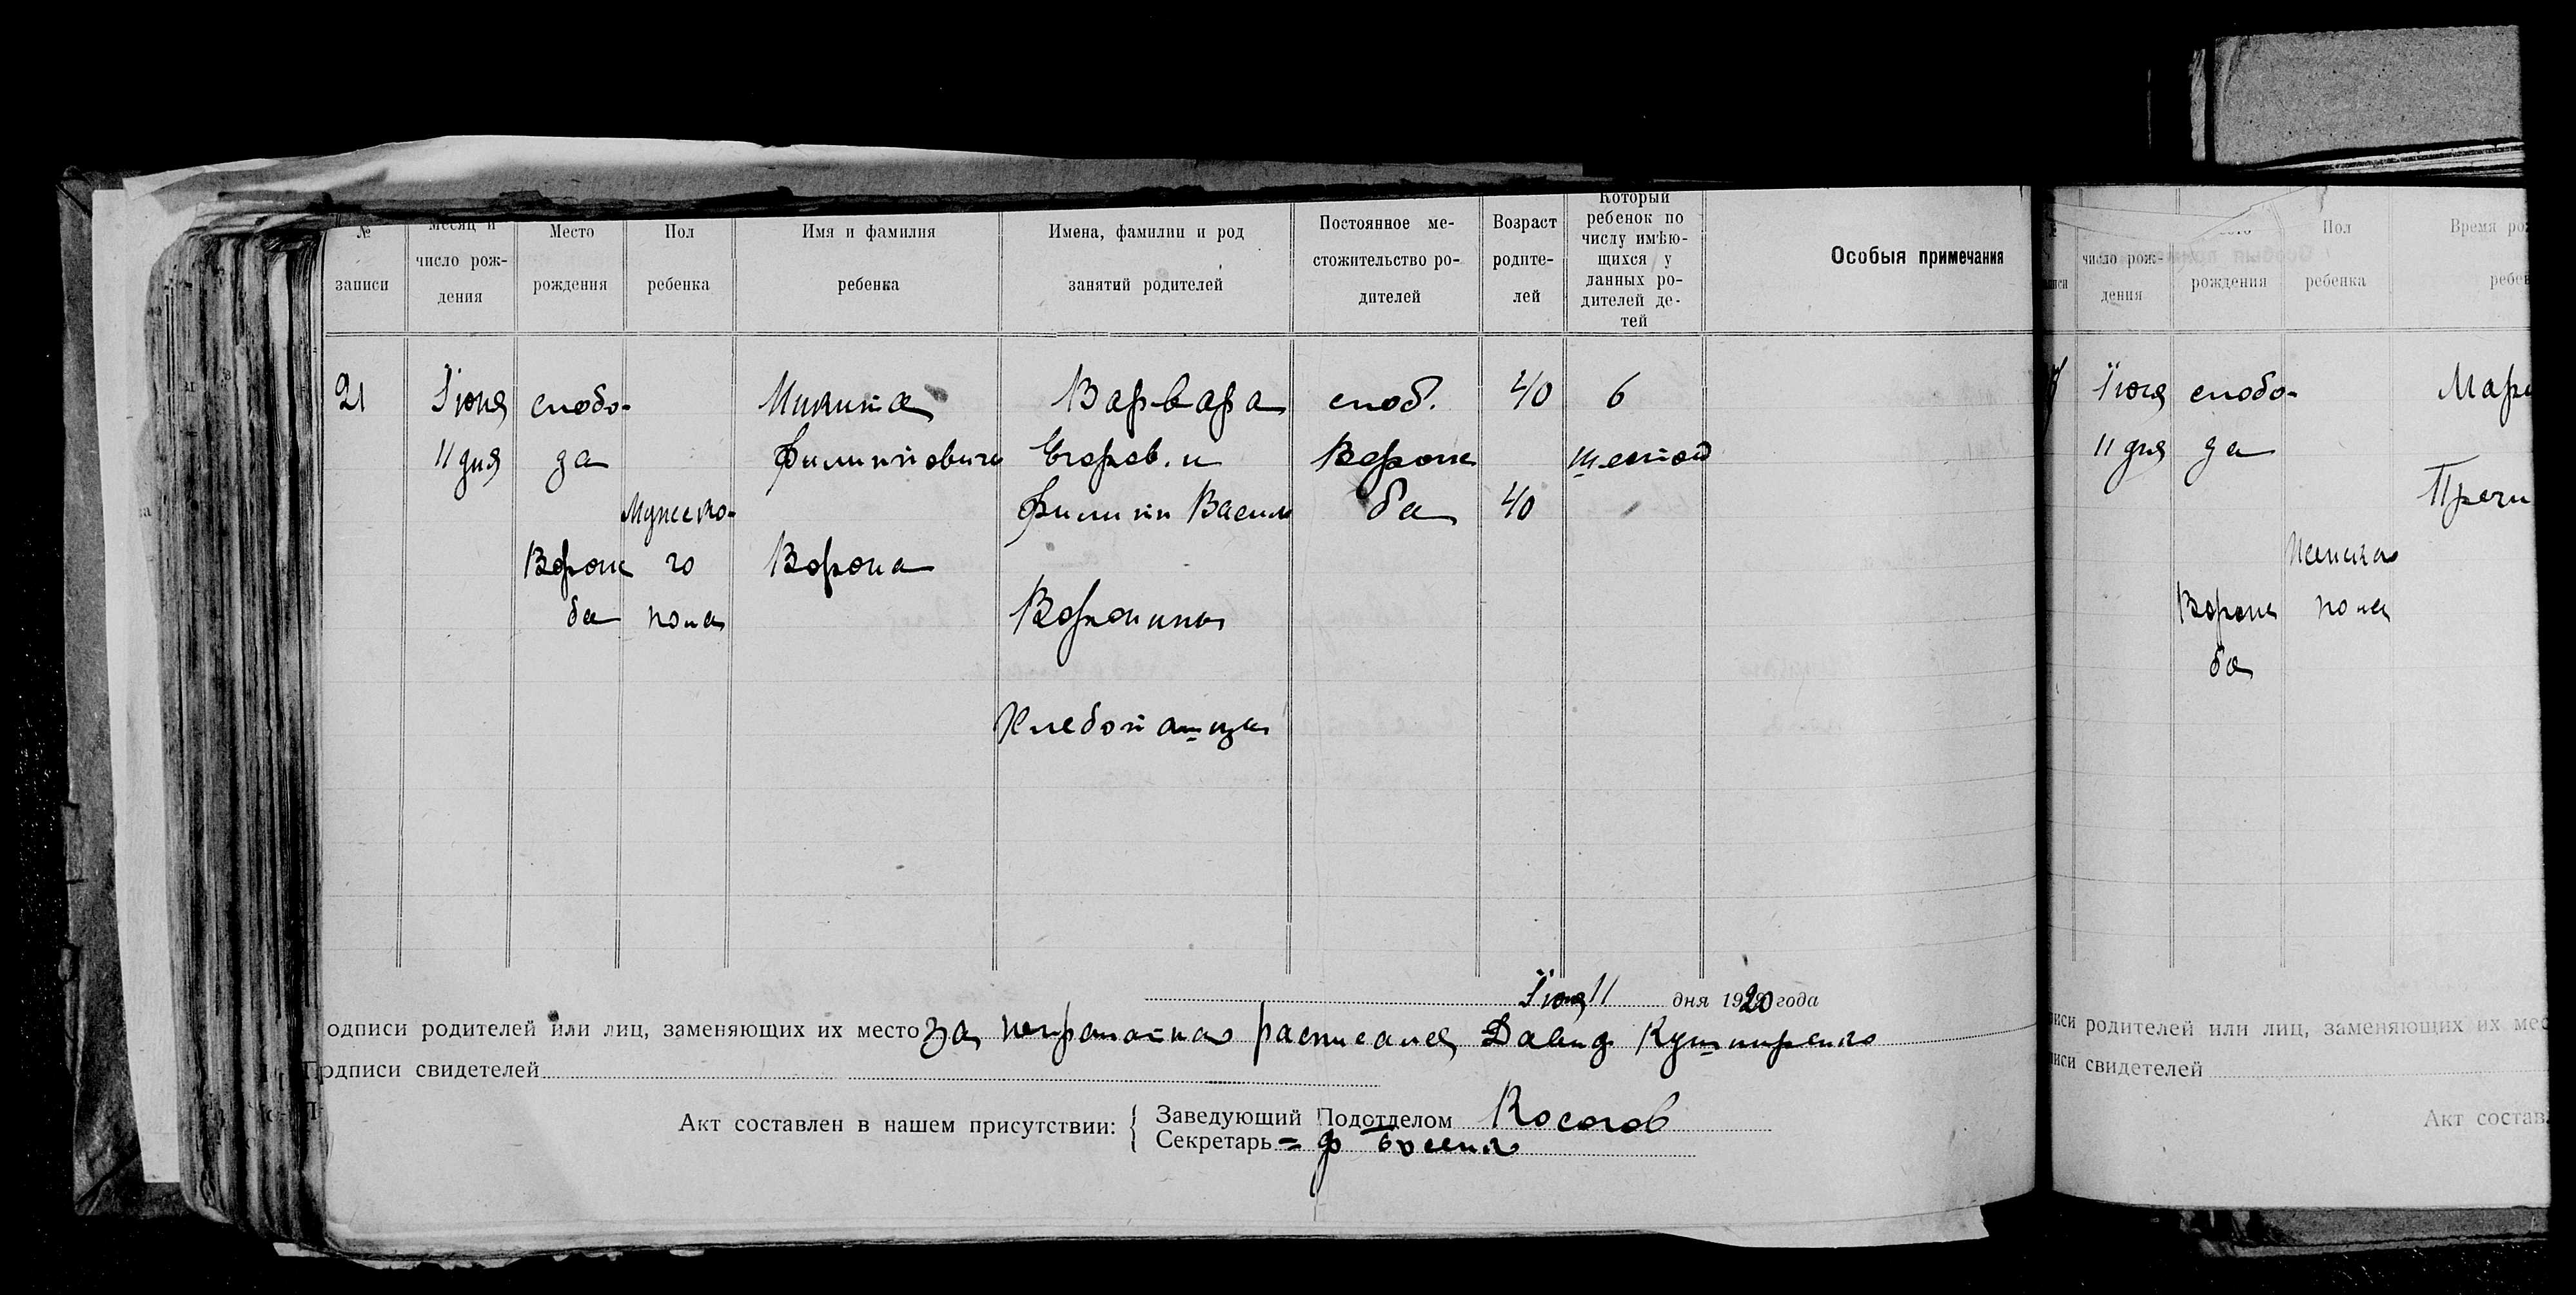 № записи
Месяц и число рож-дения
Место рождения
Пол ребенка
Имя и фамилия ребенка
Имена, фамилии и род занятий родителей
Постоянное ме-стожительство ро-дителей
Возраст родите-лей
Который ребенок по числу имѣю-щихся у данных ро-дителей де-тей
Особыя примечания
21
Iюня
11 дня
слобо-
да
Ворож
ба
Мужско-
го
пола
Микита
Филиппович
Ворона
Варвара
Егоров. и
Филипп Васил
Воронины
Хлебопашцы
слоб.
Ворож
ба
40
40
6
шестой
Iюня 11 дня 1920 года
одписи родителей или лиц, заменяющих их место за неграмотного расписался Давид Кушниренко
Подписи свидетелей
Акт составлен в нашем присутствии:
Заведующий Подотделом Косогов
Секретарь = Ф
число рож-
дения
рождения
Пол
ребенка
Время ро
ребен
Iюня
11 дня
слобо-
да
Ворож
ба
пола
Мар
писи родителей или лиц, заменяющих их мес
писи свидетелей
Акт состав